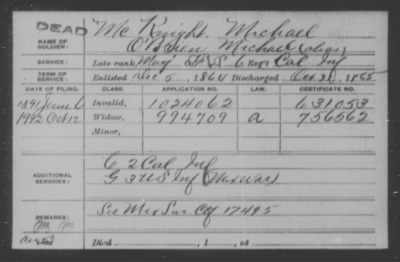 DEAD
NAME OF SOLDIER: McKnight, Michael
O'Brien Michael (alias)
SERVICE: Late rank, F&S 6 Reg't Cal Inf
TERM OF SERVICE: Enlisted 5, 1864 Discharged Oct 31, 1865
DATE OF FILING. CLASS. APPLICATION NO. LAW. CERTIFICATE NO.
1891 June 6 Invalid, 1024062 631053
Oct 12 Widow, 994709 a 756562
Minor,
ADDITIONAL SERVICES: C 2 Cal Inf
G 3 US Inf (Mex War)
REMARKS: See Mex Sur. Ctf 17495
Died , 1 , at